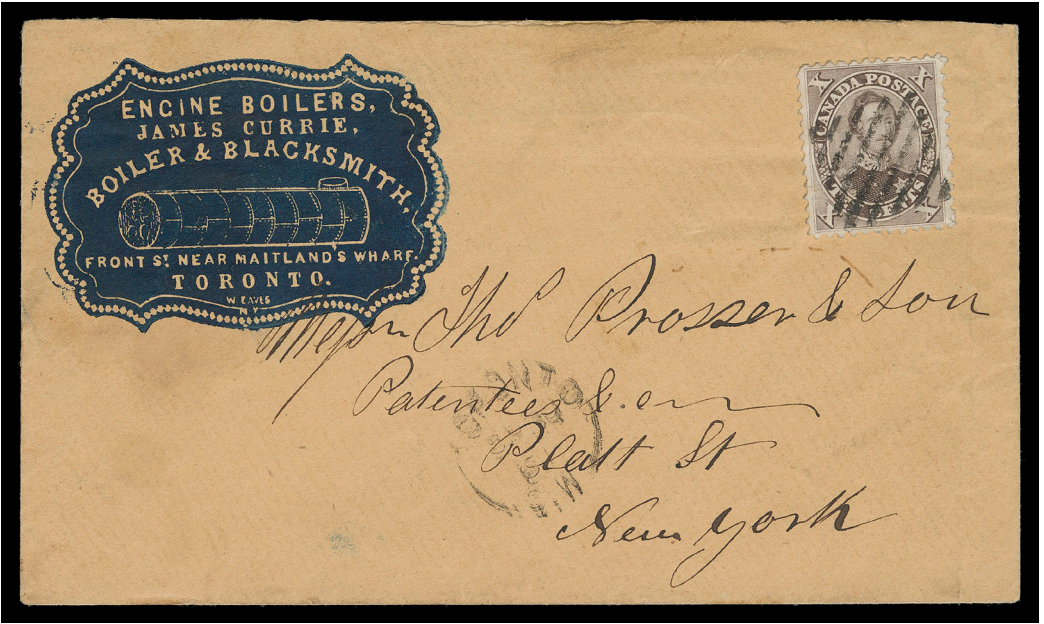 ENGINE BOILERS,
JAMES CURRIE,
BOILER & BLACKSMITH,
FRONT ST. NEAR MAITLAND'S WHARF.
TORONTO.
W EAVES
N.Y.
X X
CANADA POSTAGE
TEN CENTS
X X
Thos Prosser & Son
Patentees &.
Platt St
New York